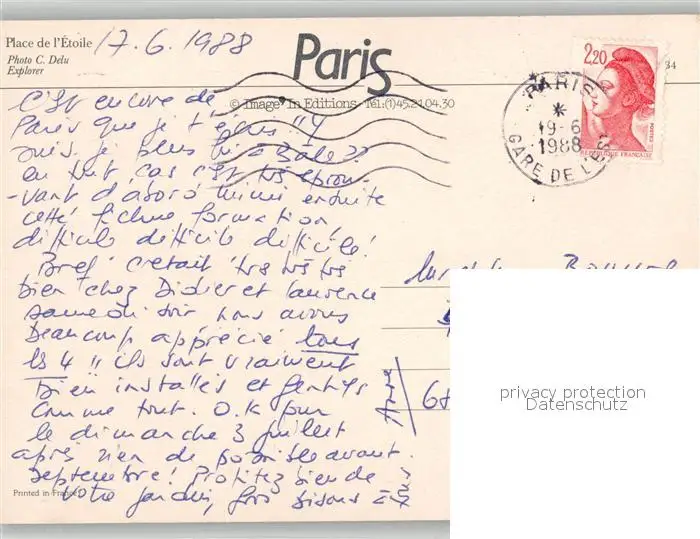 Place de l'Étoile
Photo C. Delu
Explorer
17.6.1988
Paris
© Image' In Editions - Tél:(1)45.21.04.30
34
2,20
POSTES
REPUBLIQUE FRANÇAISE
PARIS
19-6
1988
GARE DE
C'est encore de
Paris que je t'écris !! Y
suis je plus qu'à Bale ??
en tout cas c'est très éprou-
-vant d'abord mimi ensuite
cette fichue formation
difficile difficile difficile !
Bref c'était très très très
bien chez Didier et Laurence
samedi soir nous avons
beaucoup apprécié tous
les 4 !! ils sont vraiment
bien installés et gentils
comme tout. O.K pour
le dimanche 3 juillet
après rien de possible avant
septembre ! Profitez bien de
votre jardin, gros bisous à
Anne
68
privacy protection
Datenschutz
Printed in France